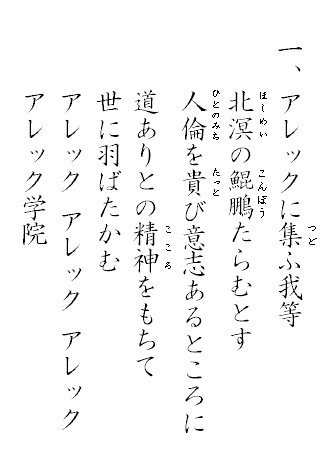 一、アレックに集ふ我等
北溟の鯤鵬たらむとす
人倫を貴び意志あるところに
道ありとの精神をもちて
世に羽ばたかむ
アレック アレック アレック
アレック学院
つど
ほしめい こんぽう
ひとのみち たっと
こころ